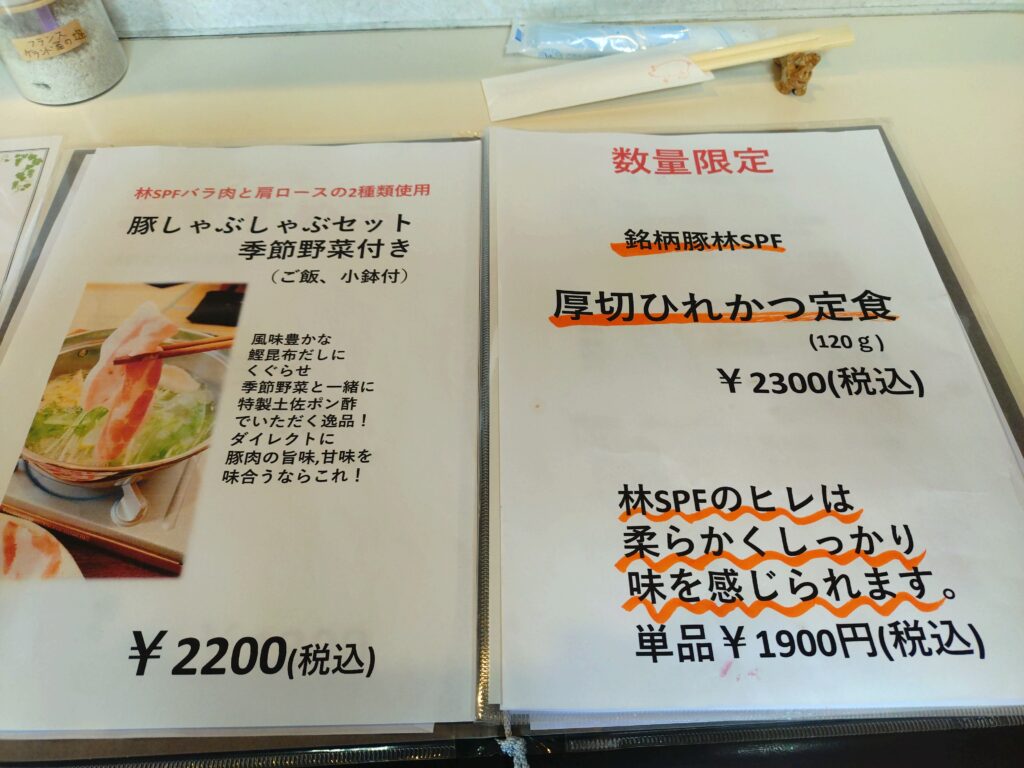 フランス
林SPFバラ肉と肩ロースの2種類使用
豚しゃぶしゃぶセット
季節野菜付き
（ご飯、小鉢付）
風味豊かな
鰹昆布だしに
くぐらせ
季節野菜と一緒に
特製土佐ポン酢
でいただく逸品！
ダイレクトに
豚肉の旨味,甘味を
味合うならこれ！
￥2200(税込)
数量限定
銘柄豚林SPF
厚切ひれかつ定食
(120ｇ)
￥2300(税込)
林SPFのヒレは
柔らかくしっかり
味を感じられます。
単品￥1900円(税込)